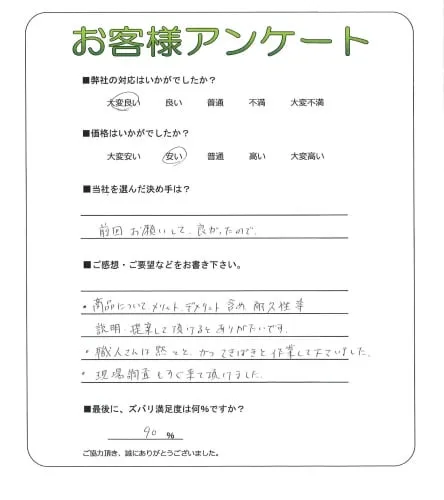 お客様アンケート
■弊社の対応はいかがでしたか？
大変良い 良い 普通 不満 大変不満
■価格はいかがでしたか？
大変安い 安い 普通 高い 大変高い
■当社を選んだ決め手は？
前回お願いして、良かったので。
■ご感想・ご要望などをお書き下さい。
・商品について、メリット、デメリット含め 耐久性等
説明、提案して頂けるとありがたいです。
・職人さんは黙々と、かつてきぱきと作業して下さいました。
・現場調査もすぐ来て頂けました。
■最後に、ズバリ満足度は何%ですか？
90 %
ご協力頂き、誠にありがとうございました。